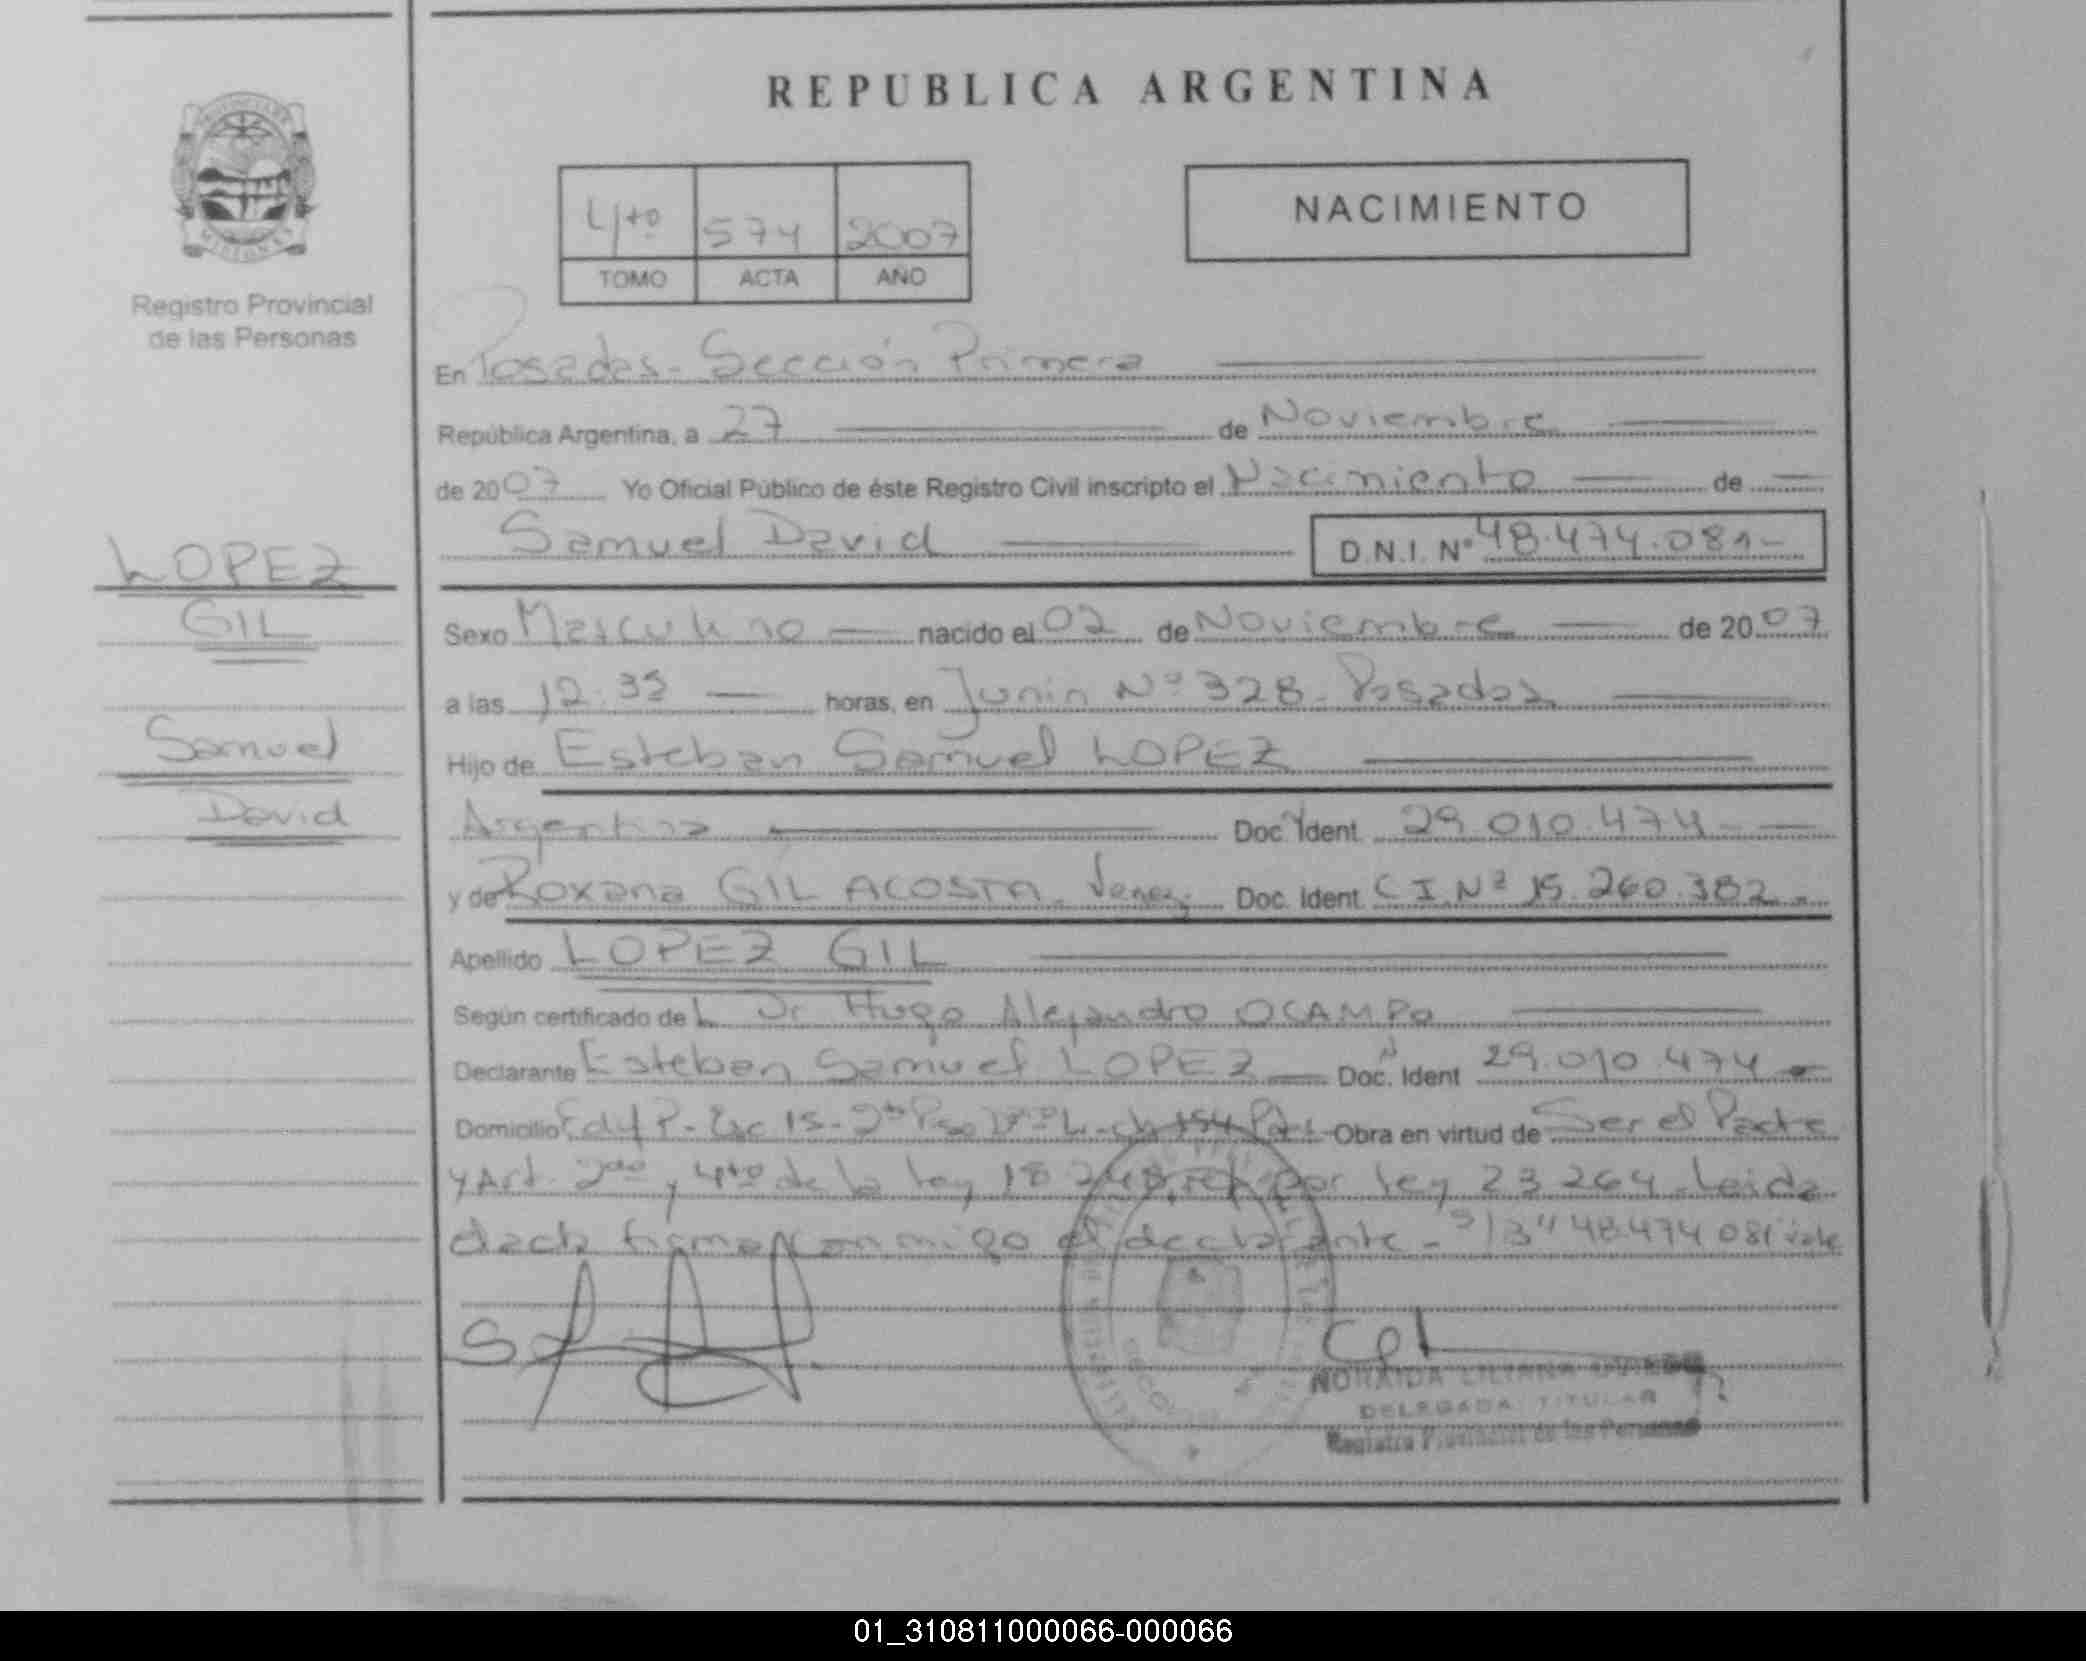 REPUBLICA ARGENTINA
4to 574 2007
TOMO ACTA AÑO
NACIMIENTO
Registro Provincial
de las Personas
LOPEZ
GIL
Samuel
David
En Posadas - Sección Primera
República Argentina, a 27 de Noviembre
de 2007 Yo Oficial Público de éste Registro Civil inscripto el Nacimiento de
Samuel David D.N.I. Nº 48.474.081-
Sexo Masculino nacido el 02 de Noviembre de 2007
a las 12:35 horas, en Junin Nº 328 - Posadas
Hijo de Esteban Samuel LOPEZ
Argentina Doc. Ident. 29.010.474 -
y de Roxana GIL ACOSTA - Venez. Doc. Ident. C I. Nº 15.260.382.-
Apellido LOPEZ GIL
Según certificado del Dr Hugo Alejandro OCAMPO
Declarante Esteban Samuel LOPEZ Doc. Ident 29.010.474 -
Domicilio Edif P - Esc 15 - 2º Piso ch 154 Obra en virtud de Ser el Padre
y Art. 2do y 4to de la Ley 18.248, por Ley 23.264. Leida
el acta firma conmigo el declarante - S/B "48.474.081" vale
NORAIDA LILIANA
DELEGADA TITULAR
Registro Provincial de las Personas
01_310811000066-000066